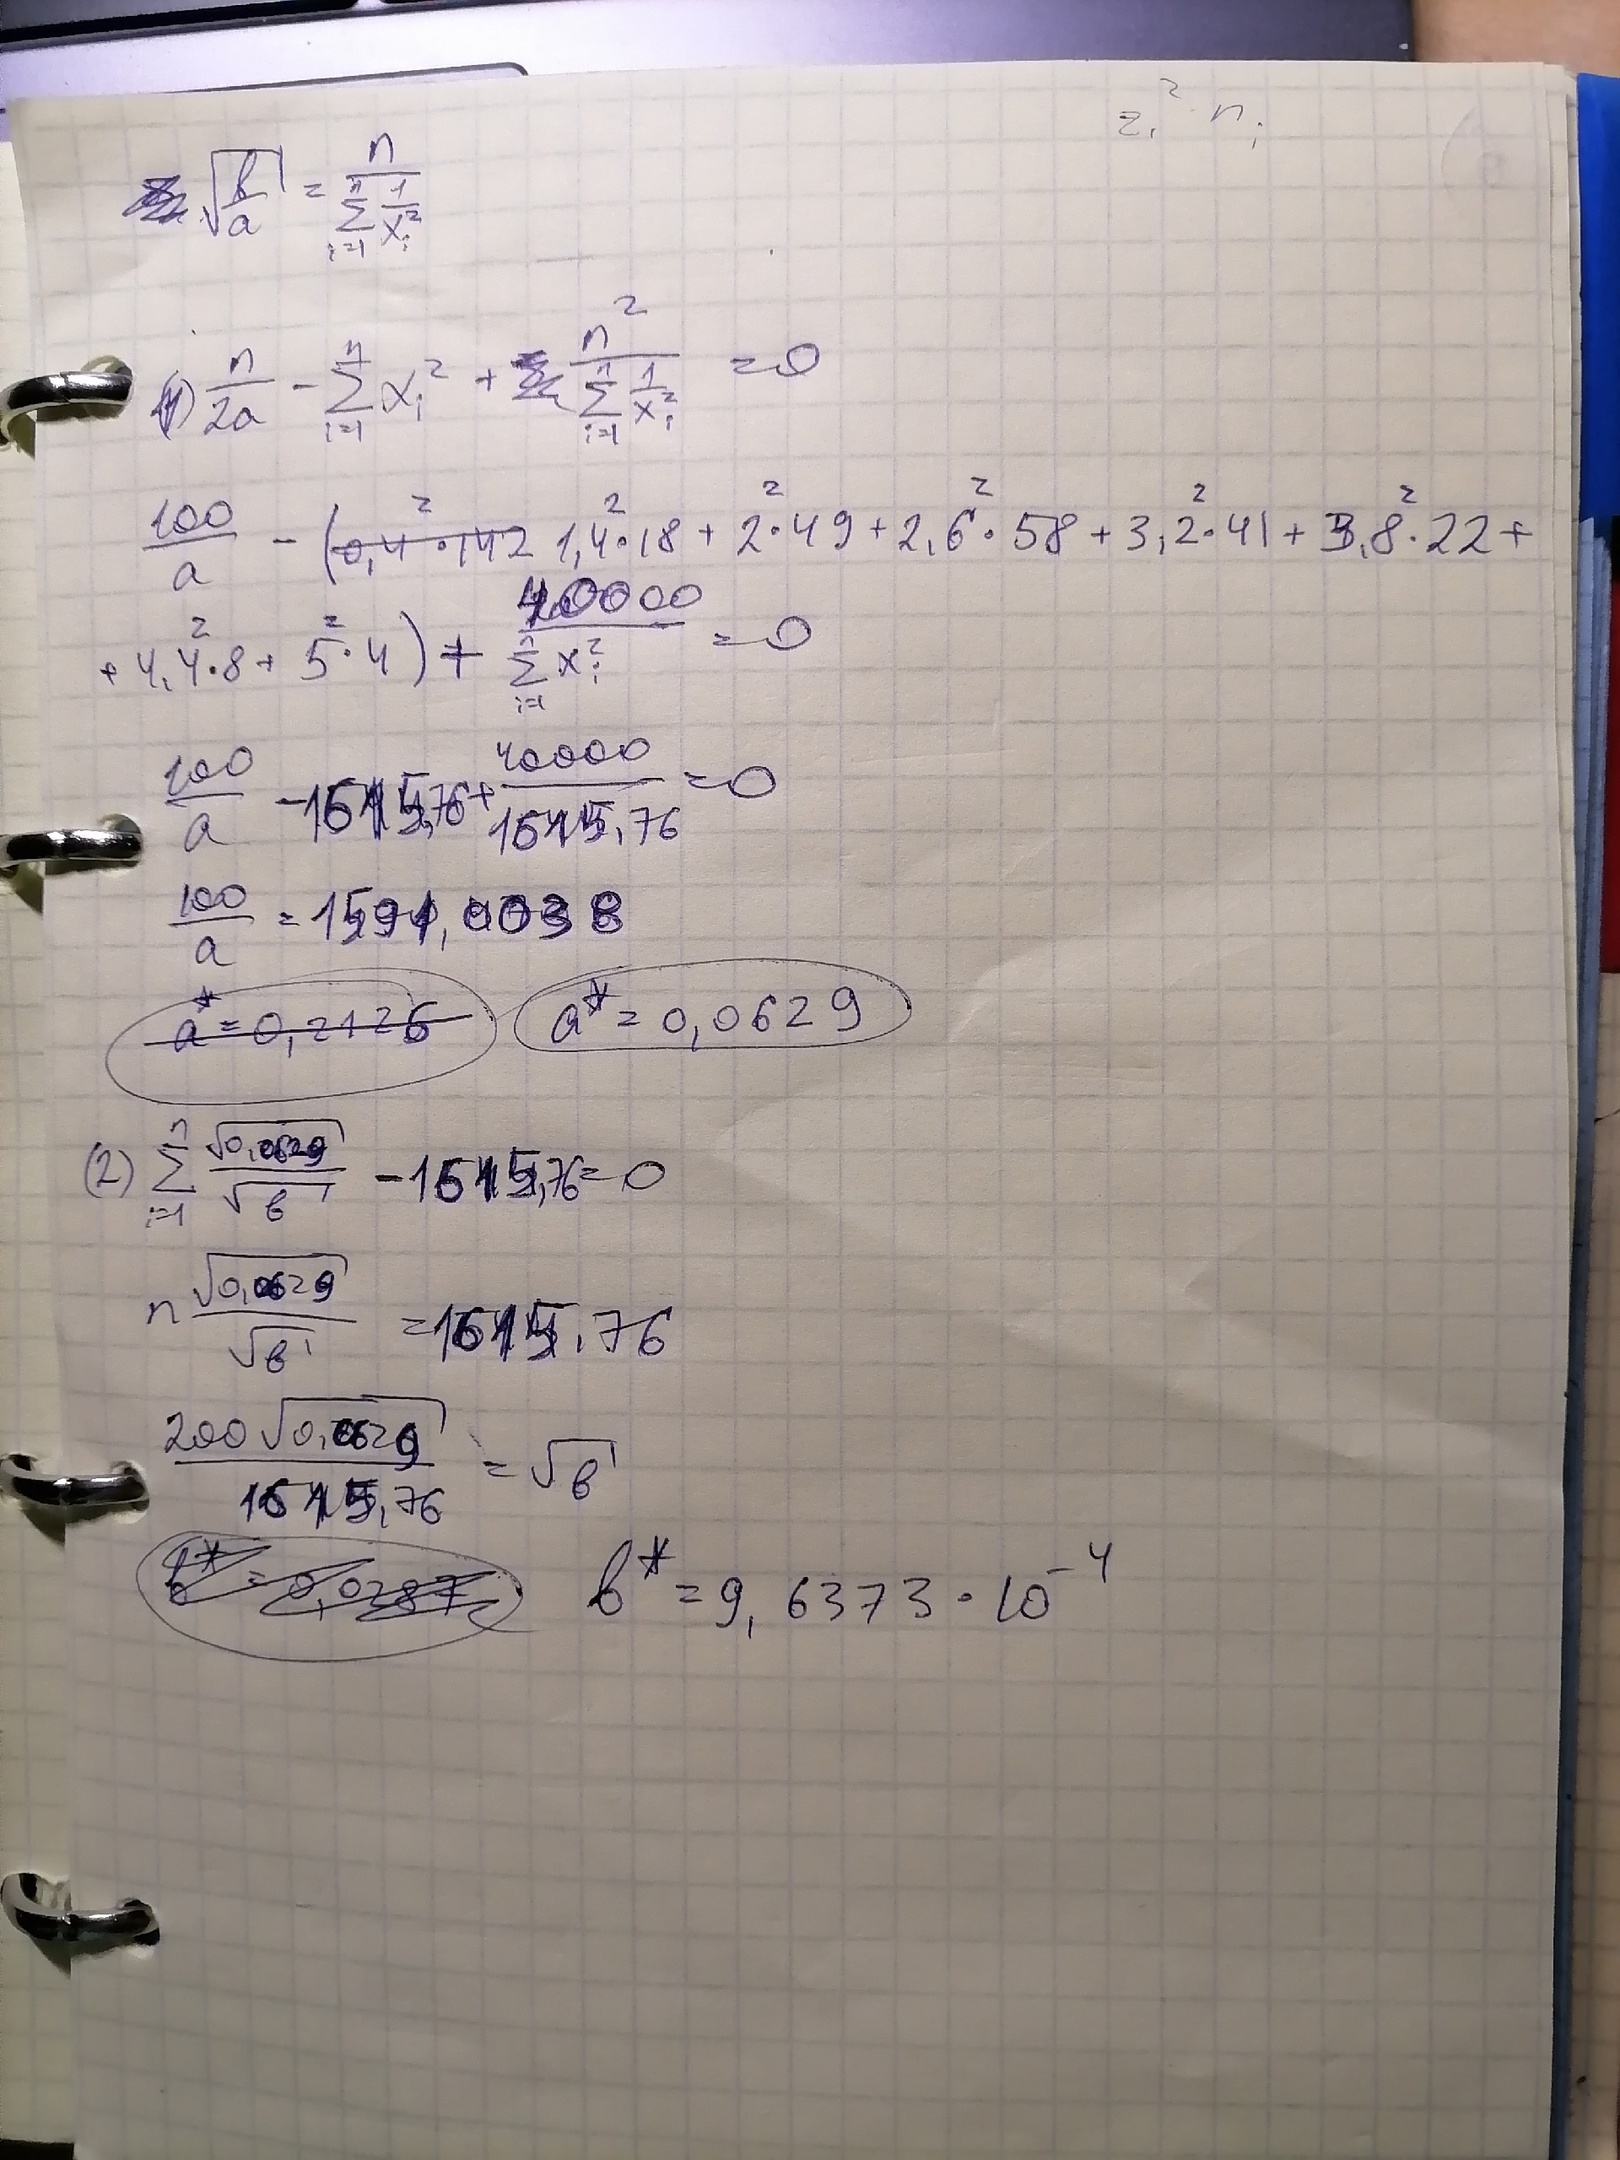 z_i^2 · n_i
√(b/a) = n / ∑_{i=1}^{n} 1/x_i^2
(1) n/2a - ∑_{i=1}^{n} x_i^2 + n^2 / ∑_{i=1}^{n} 1/x_i^2 = 0
100/a - (0,4^2·142 1,4^2·18 + 2^2·49 + 2,6^2·58 + 3,2^2·41 + 3,8^2·22 +
+ 4,4^2·8 + 5^2·4) + 40000 / ∑_{i=1}^{n} x_i^2 = 0
100/a - 1615,76 + 40000/1615,76 = 0
100/a = 1591,0038
a* = 0,2126 a* = 0,0629
(2) ∑_{i=1}^{n} √0,0629 / √b - 1615,76 = 0
n √0,0629 / √b = 1615,76
200√0,0629 / 1615,76 = √b
b* = 0,0287 b* = 9,6373·10^-4